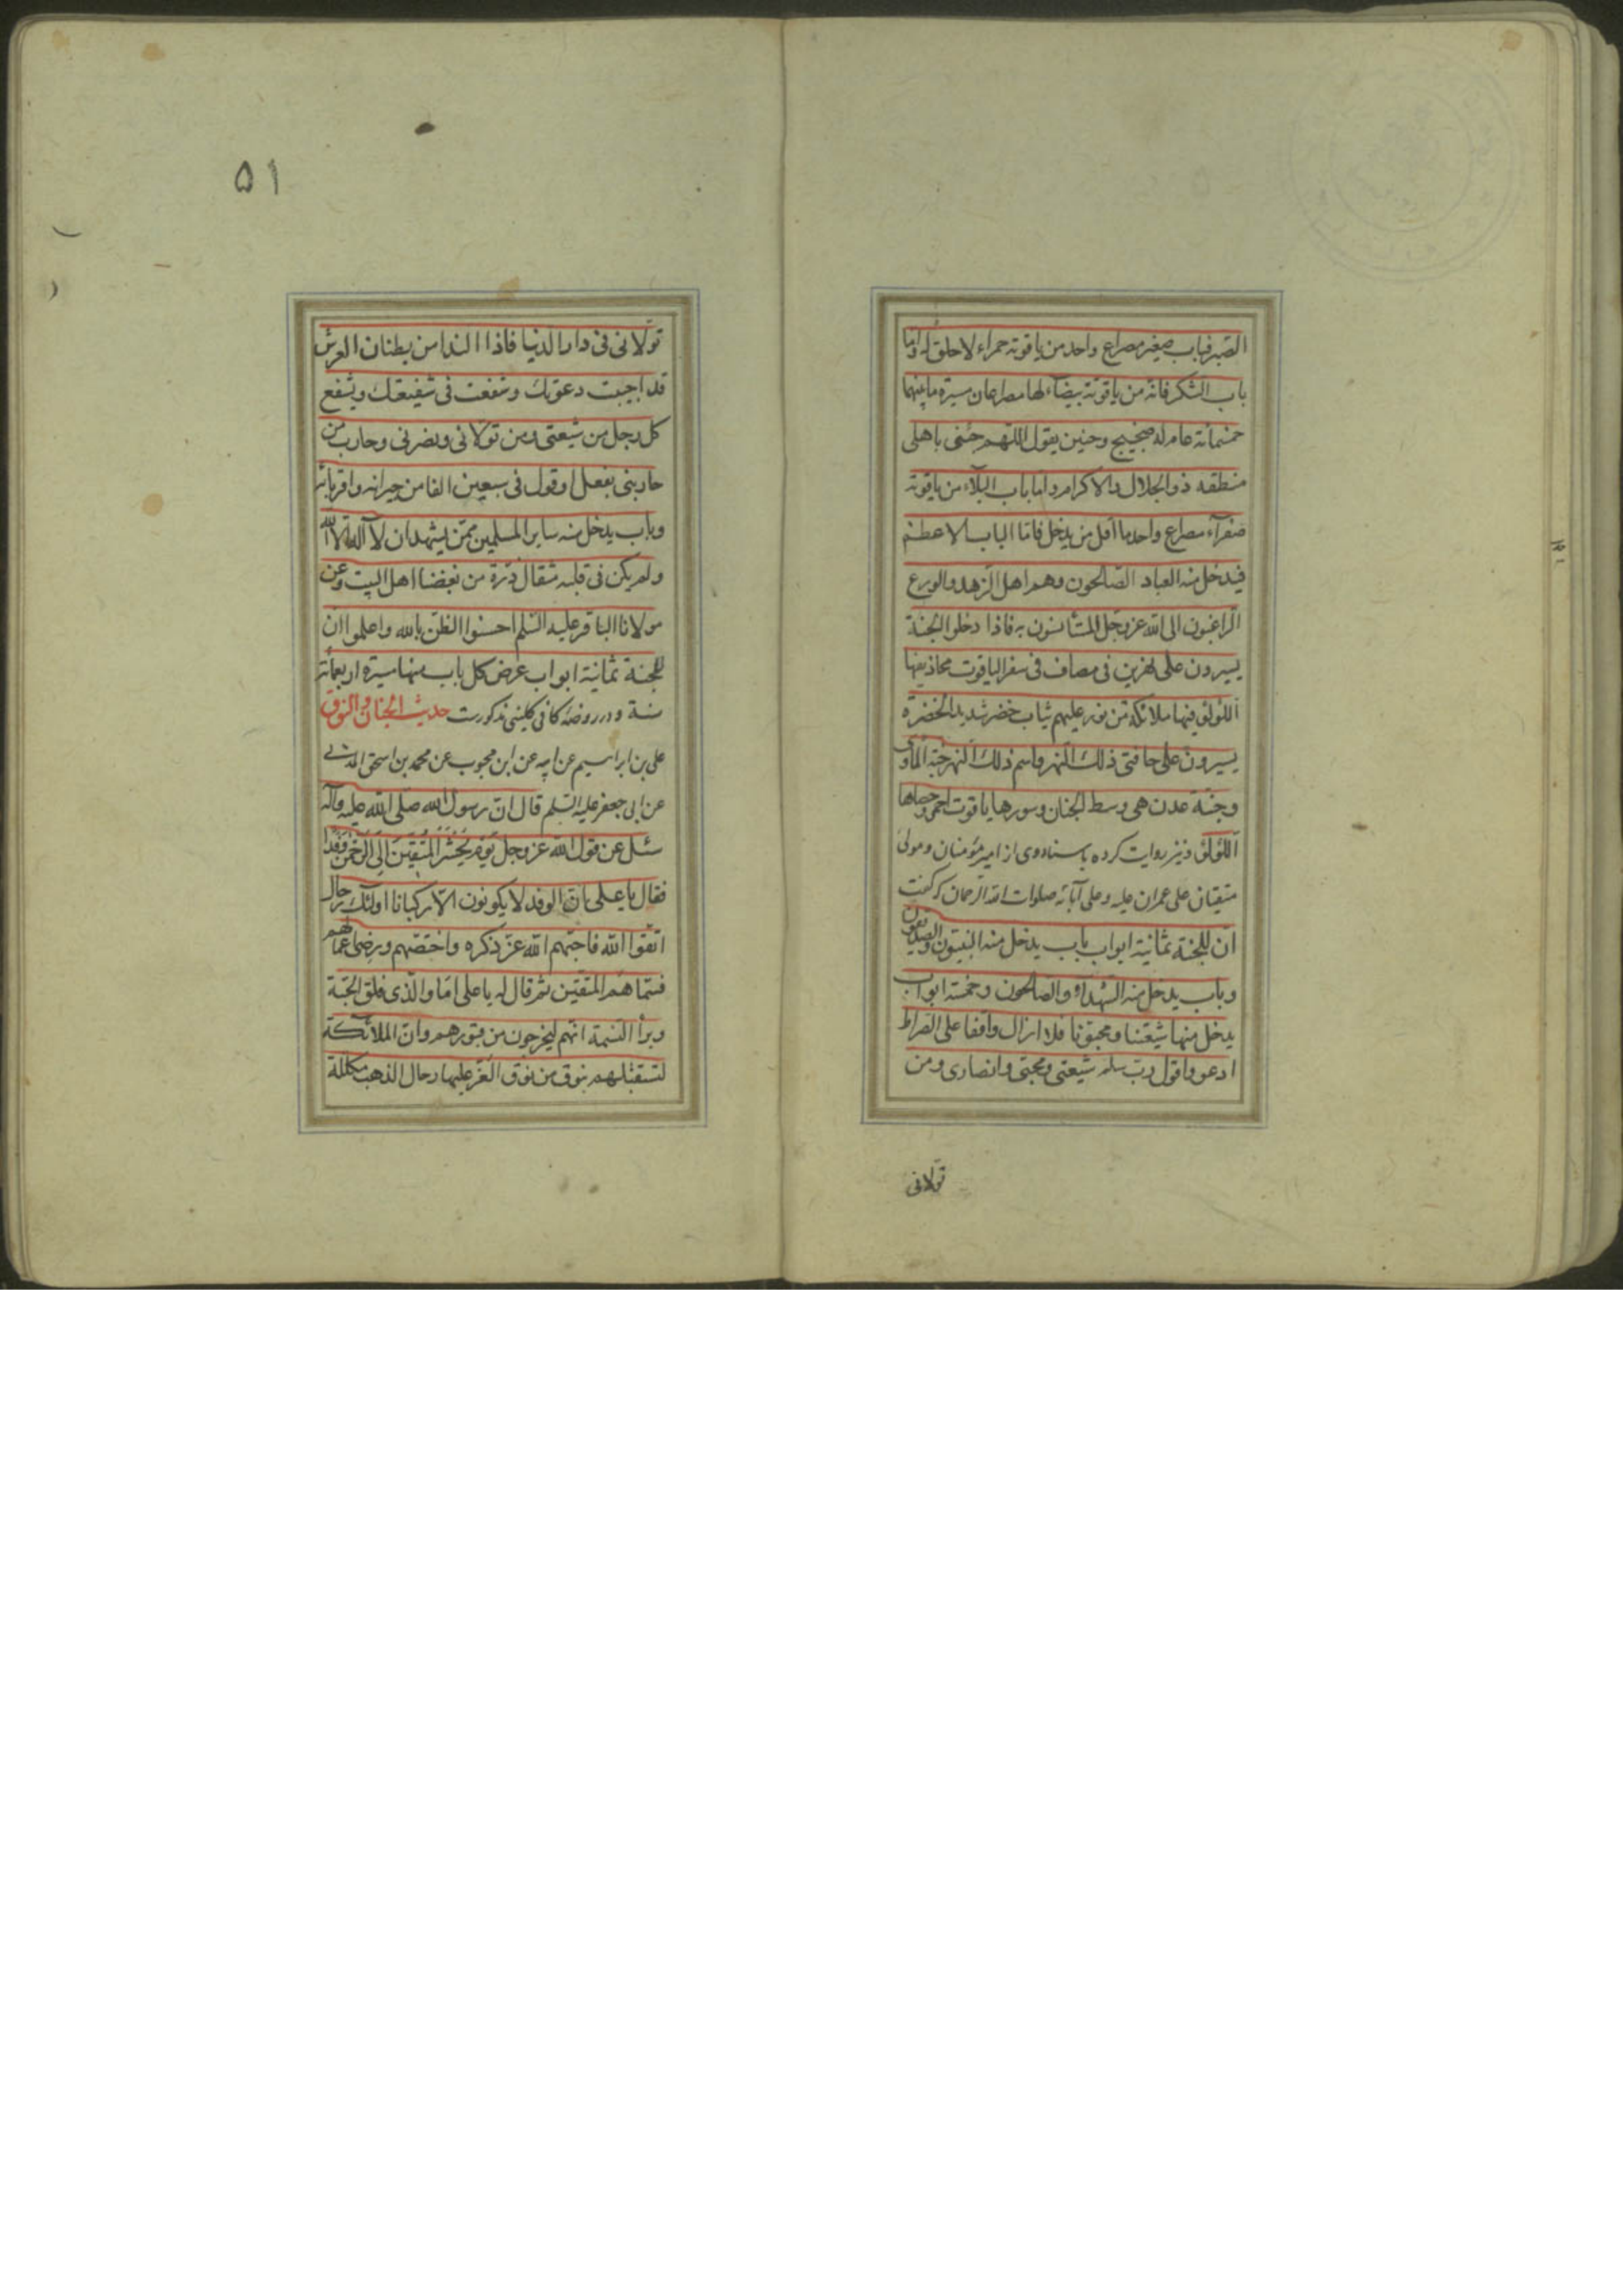 الصبر فباب صغير مصراع واحد من ياقوتة حمراء لا حلق له واما
باب الشكر فانه من ياقوتة بيضاء لها مصراعان مسيرة ما بينهما
خمسمائة عام له ضجيج وحنين يقول اللهم جئنى باهلى
منطقه ذو الجلال والاكرام واما باب البلاء من ياقوتة
صفراء مصراع واحد ما اقل من يدخل فاما الباب الاعظم
فيدخل منه العباد الصالحون وهم اهل الزهد والورع
الراغبون الى الله عز وجل المستأنسون به فاذا دخلوا الجنة
يسيرون على نهرين فى مصاف فى سفر الياقوت محاذيفها
اللؤلؤ فيها ملائكة من نور عليهم ثياب خضر شديد الخضرة
يسيرون على حافتى ذلك النهر واسم ذلك النهر جنة المأوى
وجنة عدن هى وسط الجنان وسورها ياقوت احمر وحصاها
اللؤلؤ ونيز روايت كرده باسناد وى از امير مؤمنان ومولى
متقيان على عمران عليه وعلى آبائه صلوات الله الرحمان كه گفت
ان للجنة ثمانية ابواب باب يدخل منه النبيون والصديقون
وباب يدخل منه الشهداء والصالحون وخمسة ابواب
يدخل منها شيعتنا ومحبونا فلا ازال واقفا على الصراط
ادعو واقول رب سلم شيعتى ومحبى وانصارى ومن
تولانى
۵۱
تولانى فى دار الدنيا فاذا النداء من بطنان العرش
قد اجيبت دعوتك وشفعت فى شيعتك ويشفع
كل رجل من شيعتى ومن تولانى ونصرنى وحارب من
حاربنى بفعل او قول فى سبعين الفا من جيرانه واقربائه
وباب يدخل منه ساير المسلمين ممن يشهد ان لا اله الا الله
ولم يكن فى قلبه مثقال ذرة من بغضنا اهل البيت وعن
مولانا الباقر عليه السلم احسنوا الظن بالله واعلموا ان
للجنة ثمانية ابواب عرض كل باب منها مسيرة اربعمائة
سنة ودر روضه كافى كلينى مذكورست حديث الجنان والنوق
على بن ابراهيم عن ابيه عن ابن محبوب عن محمد بن اسحق المدنى
عن ابى جعفر عليه السلم قال ان رسول الله صلى الله عليه وآله
سئل عن قول الله عز وجل يَوْمَ نَحْشُرُ الْمُتَّقِينَ اِلَى الرَّحْمٰنِ وَفْدًا
فقال يا على ان الوفد لا يكونون الا ركبانا اولئك رجال
اتقوا الله فاحبهم الله عز ذكره واختصهم ورضى اعمالهم
فسماهم المتقين ثم قال له يا على اما والذى فلق الحبة
وبرأ النسمة انهم ليخرجون من قبورهم وان الملائكة
لتستقبلهم بنوق من نوق العز عليها رحال الذهب مكللة